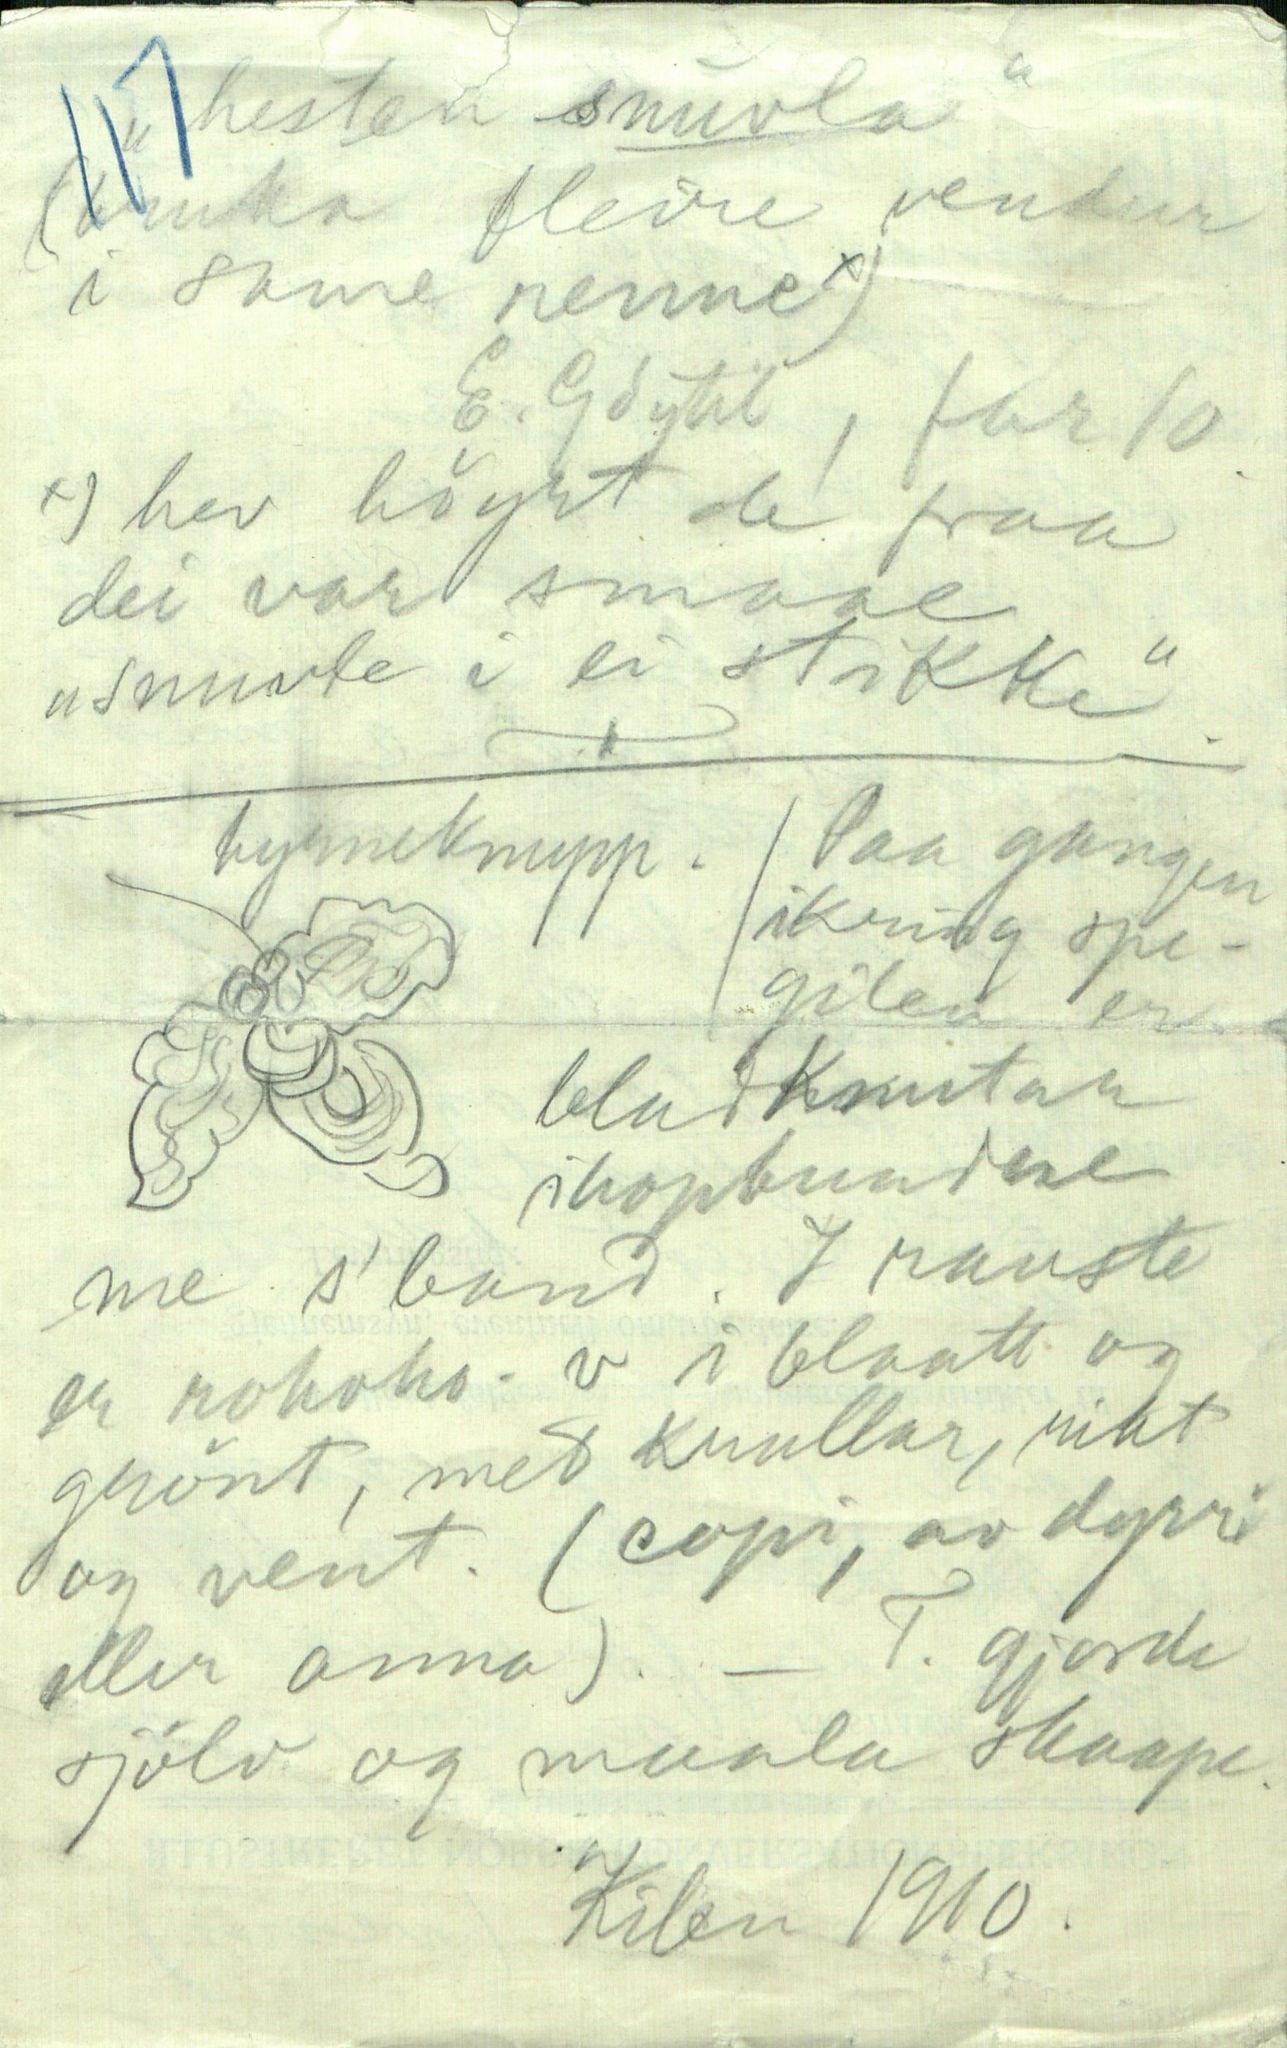 117
„hesten snuvla"
(bruka fleire vendur
i same renne x)
E. Göytil, far 10.
x) hev höyrt de fraa
dei var smaae
„snuvle i ei stikke".
hyrneknupp.
Paa gangen
ikring spe-
gilen er
bladknutar
ihopbundne
me s' band. I rauste
er rokoko- v i blaatt og
grönt, med krullar, rikt
og vent. (copi, av dyrri
eller anna). — T. gjorde
sjölv og maala skaape.
Kilen 1910.